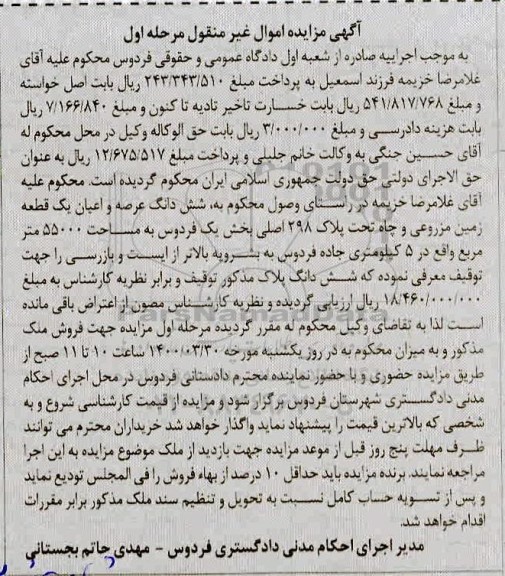 آگهی مزایده اموال غیر منقول مرحله اول
به موجب اجراییه صادره از شعبه اول دادگاه عمومی و حقوقی فردوس محکوم علیه آقای
غلامرضا خزیمه فرزند اسمعیل به پرداخت مبلغ ۲۴۳/۳۴۳/۵۱۰ ریال بابت اصل خواسته
و مبلغ ۵۴۱/۸۱۷/۷۶۸ ریال بابت خسارت تاخیر تادیه تا کنون و مبلغ ۷/۱۶۶/۸۴۰ ریال
بابت هزینه دادرسی و مبلغ ۳/۰۰۰/۰۰۰ ریال بابت حق الوکاله وکیل در محل محکوم له
آقای حسین جنگی به وکالت خانم جلیلی و پرداخت مبلغ ۱۲/۶۷۵/۵۱۷ ریال به عنوان
حق الاجرای دولتی حق دولت جمهوری اسلامی ایران محکوم گردیده است. محکوم علیه
آقای غلامرضا خزیمه در راستای وصول محکوم به، شش دانگ عرصه و اعیان یک قطعه
زمین مزروعی و چاه تحت پلاک ۲۹۸ اصلی بخش یک فردوس به مساحت ۵۵۰۰۰ متر
مربع واقع در ۵ کیلومتری جاده فردوس به بشرویه بالاتر از ایست و بازرسی را جهت
توقیف معرفی نموده که شش دانگ پلاک مذکور توقیف و برابر نظریه کارشناس به مبلغ
۱۸/۴۶۰/۰۰۰/۰۰۰ ریال ارزیابی گردیده و نظریه کارشناس مصون از اعتراض باقی مانده
است لذا به تقاضای وکیل محکوم له مقرر گردیده مرحله اول مزایده جهت فروش ملک
مذکور و به میزان محکوم به در روز یکشنبه مورخه ۱۴۰۰/۰۳/۳۰ ساعت ۱۰ تا ۱۱ صبح از
طریق مزایده حضوری و با حضور نماینده محترم دادستانی فردوس در محل اجرای احکام
مدنی دادگستری شهرستان فردوس برگزار شود و مزایده از قیمت کارشناسی شروع و به
شخصی که بالاترین قیمت را پیشنهاد نماید واگذار خواهد شد خریداران محترم می توانند
ظرف مهلت پنج روز قبل از موعد مزایده جهت بازدید از ملک موضوع مزایده به این اجرا
مراجعه نمایند. برنده مزایده باید حداقل ۱۰ درصد از بهاء فروش را فی المجلس تودیع نماید
و پس از تسویه حساب کامل نسبت به تحویل و تنظیم سند ملک مذکور برابر مقررات
اقدام خواهد شد.
مدیر اجرای احکام مدنی دادگستری فردوس - مهدی حاتم بجستانی